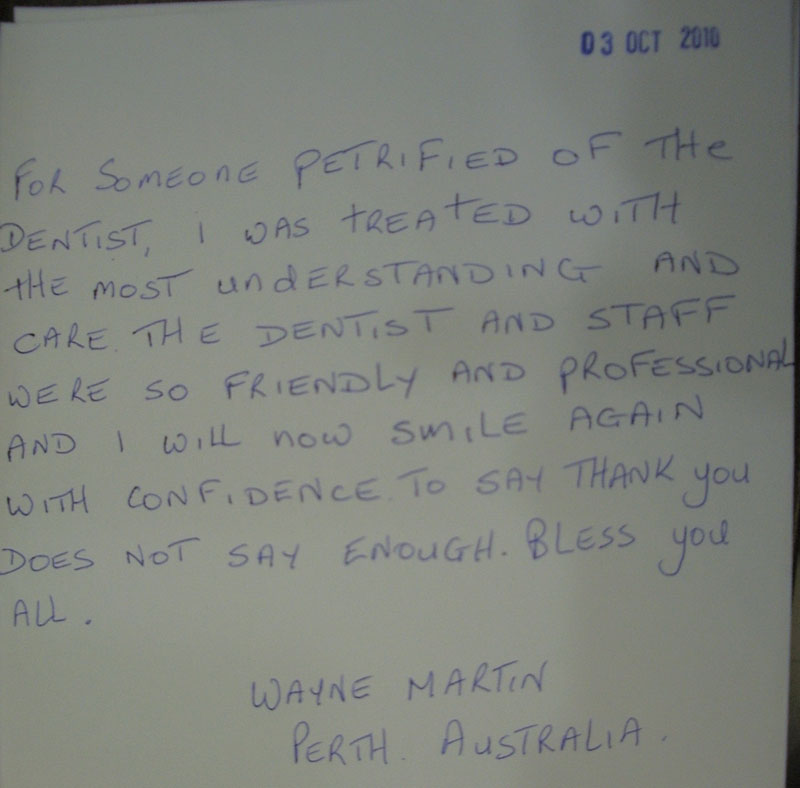 03 OCT 2010
FOR SOMEONE PETRIFIED OF THE
DENTIST, I WAS TREATED WITH
THE MOST UNDERSTANDING AND
CARE. THE DENTIST AND STAFF
WERE SO FRIENDLY AND PROFESSIONAL
AND I WILL NOW SMILE AGAIN
WITH CONFIDENCE. TO SAY THANK you
DOES NOT SAY ENOUGH. BLESS you
ALL.
WAYNE MARTIN
PERTH. AUSTRALIA.